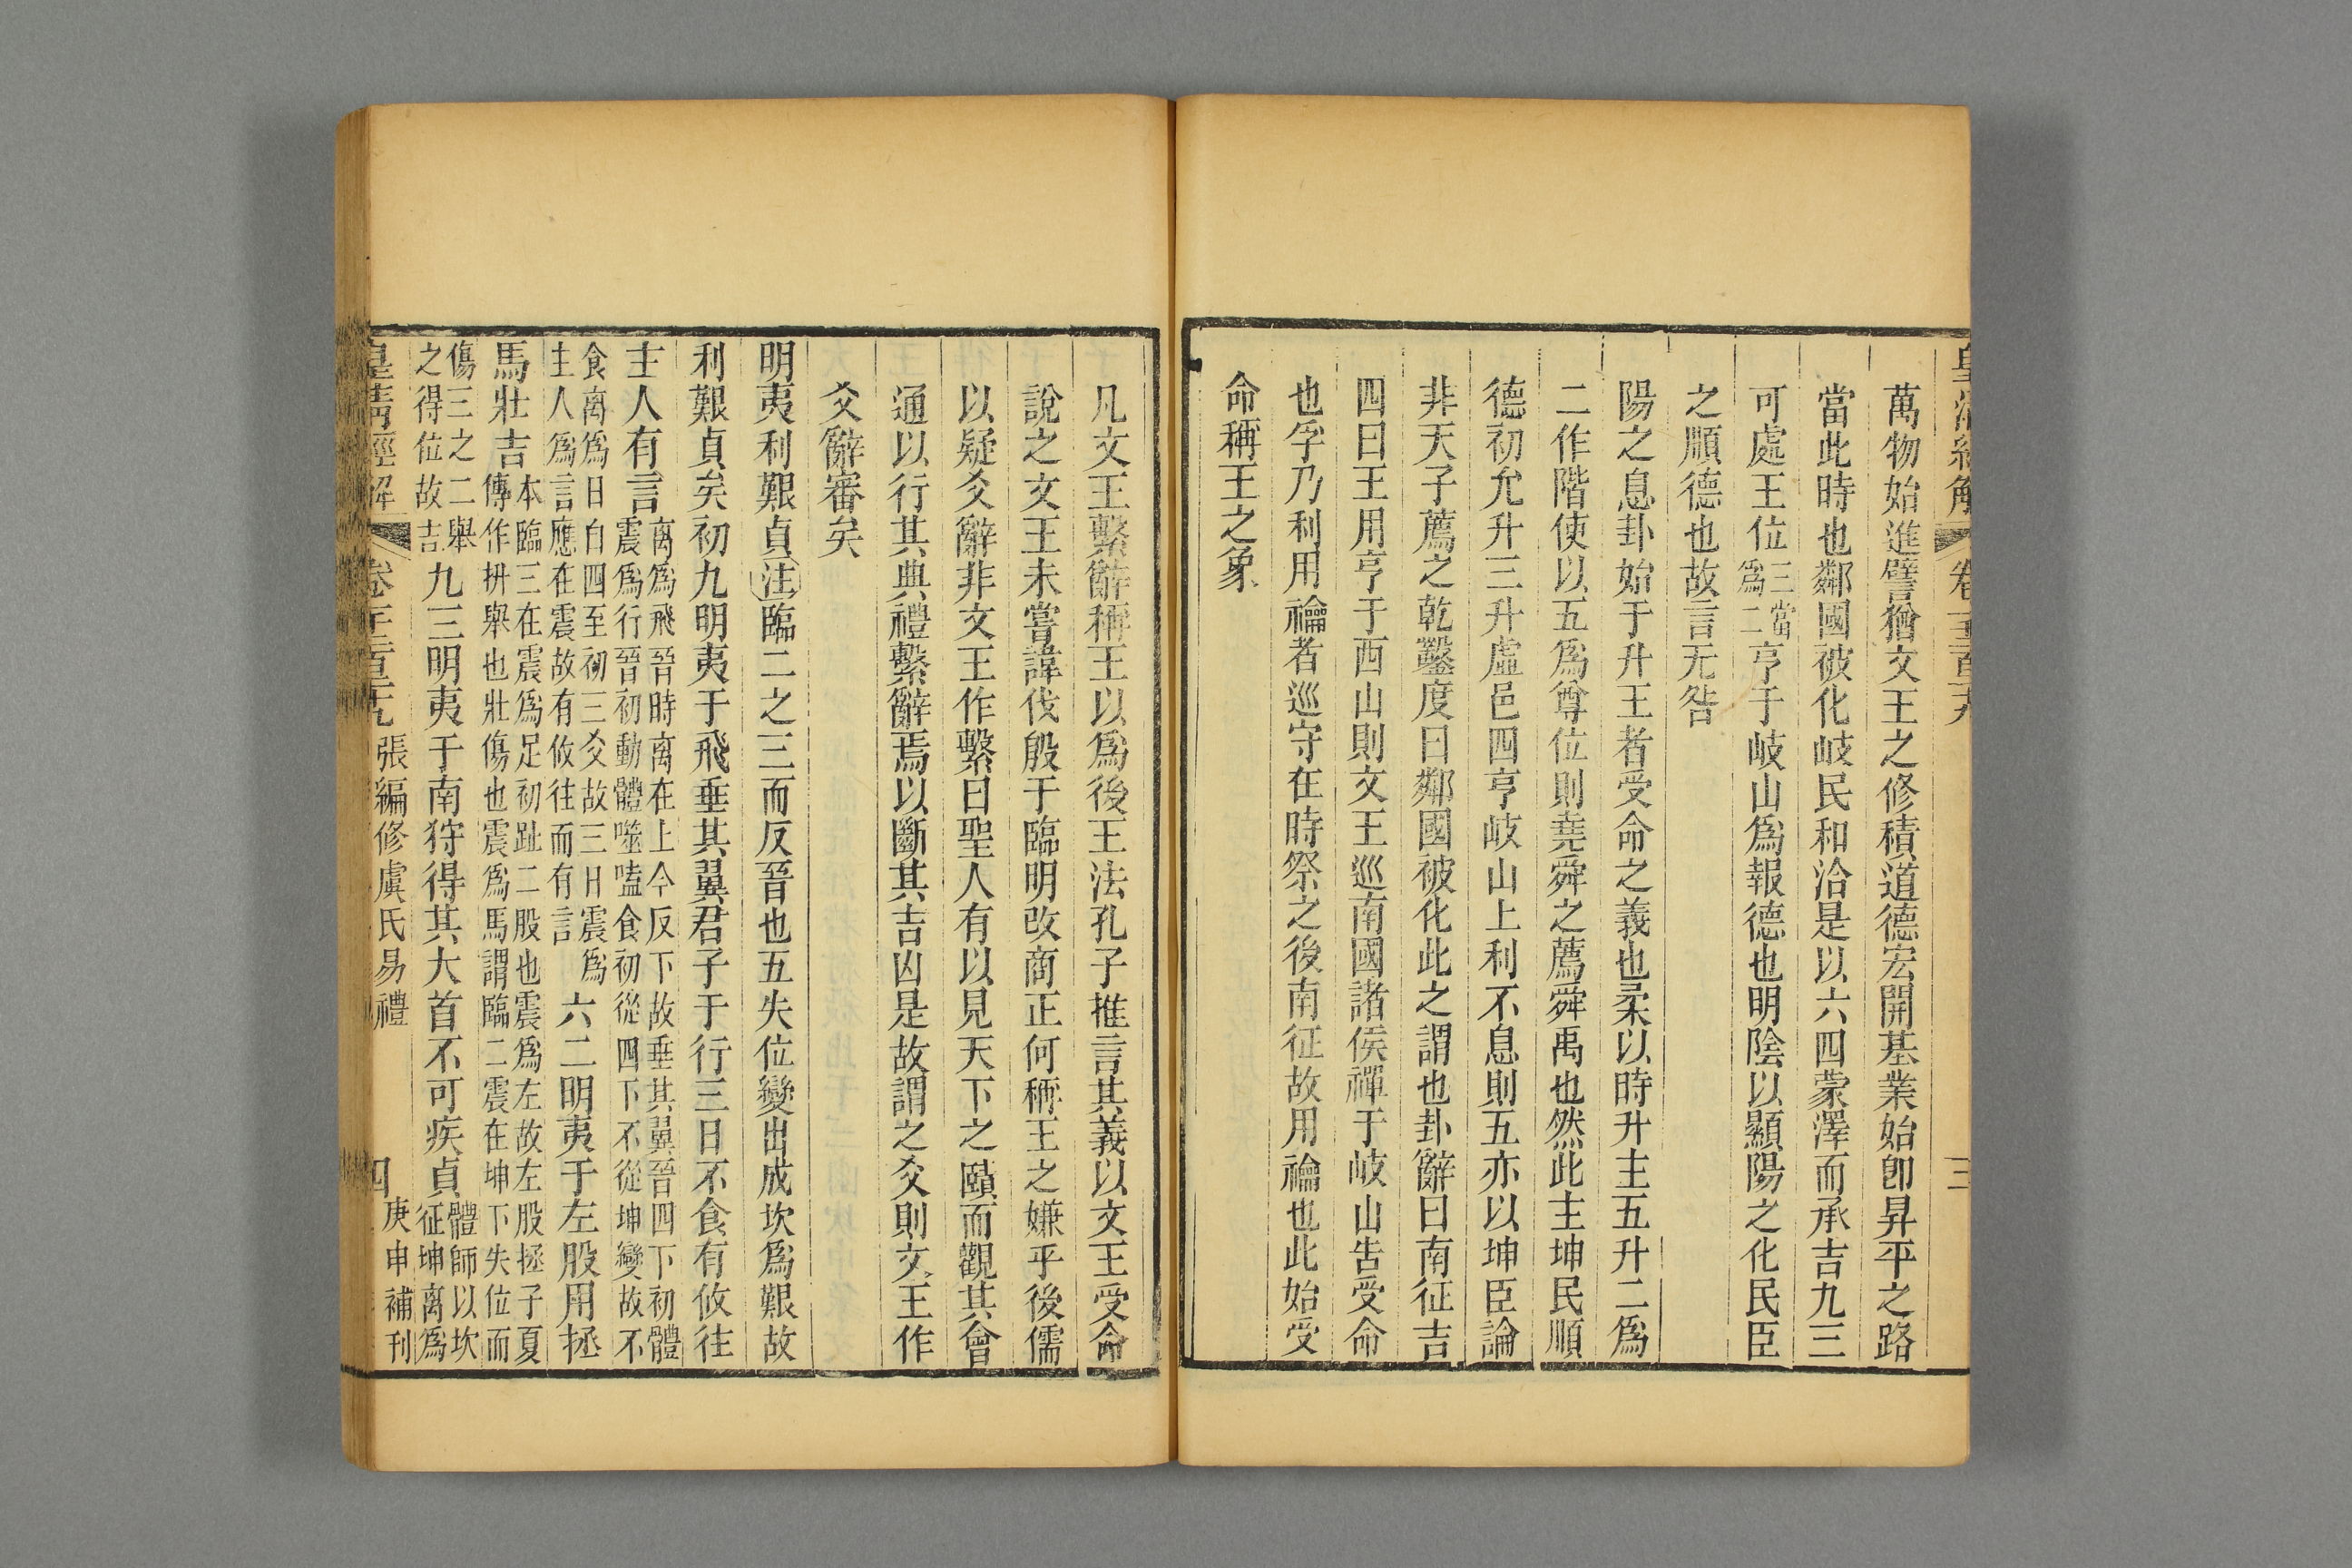 萬物始進譬猶文王之修積道德宏開基業始卽昇平之路
當此時也鄰國被化岐民和洽是以六四蒙澤而承吉九三
可處王位三當爲二亨于岐山爲報德也明陰以顯陽之化民臣
之順德也故言无咎
陽之息卦始于升王者受命之義也柔以時升主五升二爲
二作階使以五爲尊位則堯舜之薦舜禹也然此主坤民順
德初允升三升虛邑四亨岐山上利不息則五亦以坤臣論
非天子薦之乾鑿度曰鄰國被化此之謂也卦辭曰南征吉
四曰王用亨于西山則文王巡南國諸侯禪于岐山告受命
也孚乃利用禴者巡守在時祭之後南征故用禴也此始受
命稱王之象
凡文王繫辭稱王以爲後王法孔子推言其義以文王受命
說之文王未嘗諱伐殷于臨明改商正何稱王之嫌乎後儒
以疑爻辭非文王作繫曰聖人有以見天下之賾而觀其會
通以行其典禮繫辭焉以斷其吉凶是故謂之爻則文王作
爻辭審矣
明夷利艱貞注臨二之三而反晉也五失位變出成坎爲艱故
利艱貞矣初九明夷于飛垂其翼君子于行三日不食有攸往
主人有言離爲飛晉時離在上今反下故垂其翼晉四下初體
震爲行晉初動體噬嗑食初從四下不從坤變故不
食離爲日自四至初三爻故三日震爲
主人爲言應在震故有攸往而有言六二明夷于左股用拯
馬壯吉本臨三在震爲足初趾二股也震爲左故左股拯子夏
傳作抍舉也壯傷也震爲馬謂臨二震在坤下失位而
傷三之二舉
之得位故吉九三明夷于南狩得其大首不可疾貞體師以坎
征坤離爲
皇淸經解 張編修虞氏易禮 四 庚申補刊